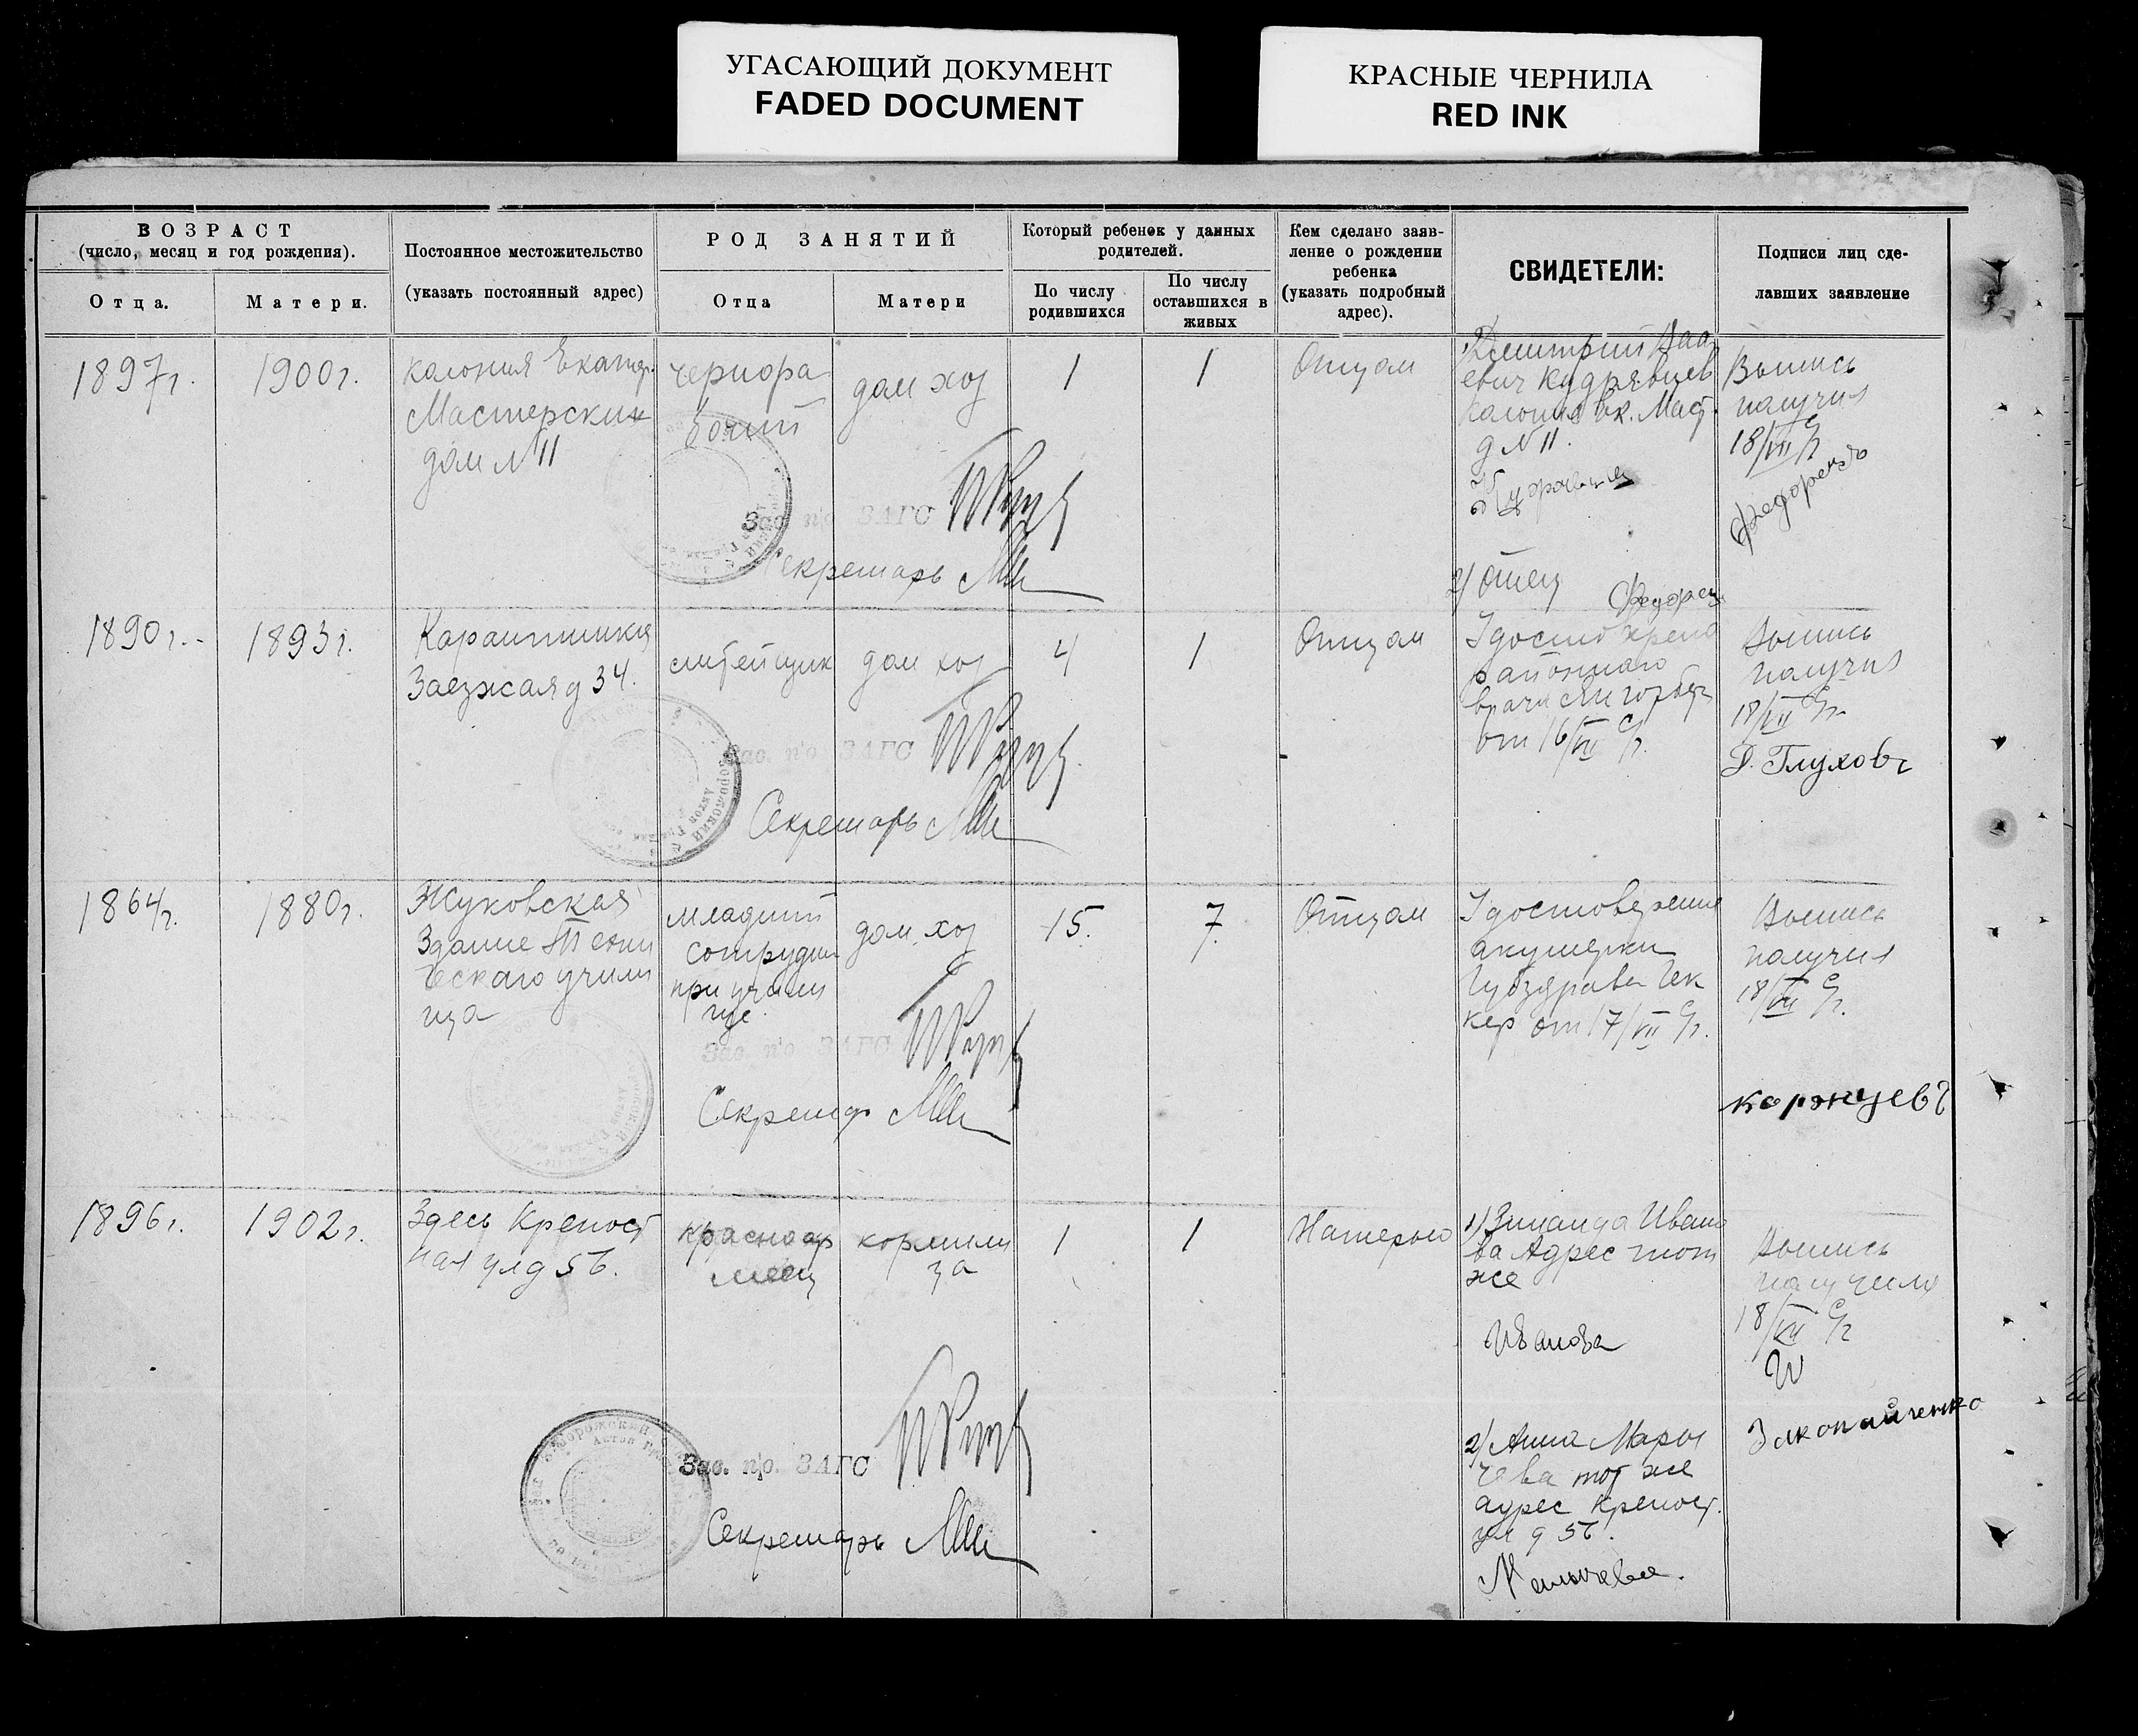 УГАСАЮЩИЙ ДОКУМЕНТ
FADED DOCUMENT
КРАСНЫЕ ЧЕРНИЛА
RED INK
ВОЗРАСТ
(число, месяц и год рождения).
Отца.
Матери.
Постоянное местожительство
(указать постоянный адрес)
РОД ЗАНЯТИЙ
Отца
Матери
Который ребенок у данных
родителей.
По числу
родившихся
По числу
оставшихся в
живых
Кем сделано заяв-
ление о рождении
ребенка
(указать подробный
адрес).
СВИДЕТЕЛИ:
Подписи лиц сде-
лавших заявление
1897г.
1900г.
колония Екатер.
Мастерских
дом N 11
чернора
бочий
дом хоз
1
1
Отцом
Дмитрий
евич Кудрявцев
колония Ек. Маст.
д N 11.
2/ Отец
Выпись
получил
18/VII с/г
Зав. п/о ЗАГС
Секретарь
1890г.
1893г.
Карантинка
Заезжая д 34.
литейщик
дом хоз
4
1
Отцом
районного
врача
от 16/VII с/г.
Выпись
получил
18/VII с/г
Д. Глуховъ
Зав. п/о ЗАГС
Секретарь
1864г.
1880г.
Жуковская
Здание техни
ческаго учили
ща
младший
сотрудник
при учили
ще
дом. хоз
15.
7.
Отцом
Удостоверение
акушерки
Губздрава
от 17/VII с/г.
Выпись
получил
18/VII с/г.
Зав. п/о ЗАГС
Секретар
1896г.
1902г.
Здесь Крепост
ная ул д 56.
красноар
меец
кормили
ца
1
1
Матерью
1/ Зинаида Ивано
ва Адрес тот
же
Иванова
2/ Анна
чева тот же
адрес Крепост.
ул д 56.
Выпись
получила
18/VII с/г
Зав. п/о. ЗАГС
Секретарь